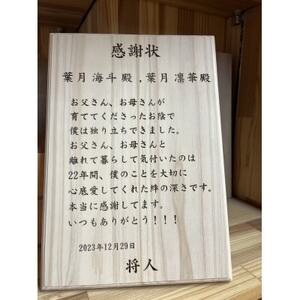 感謝状
葉月海斗殿.葉月凛華殿
お父さん、お母さんが
育ててくださったお陰で
僕は独り立ちできました。
お父さん、お母さんと
離れて暮らして気付いたのは
22年間、僕のことを大切に
心底愛してくれた絆の深さです。
本当に感謝してます。
いつもありがとう!!!
2023年12月29日
将人